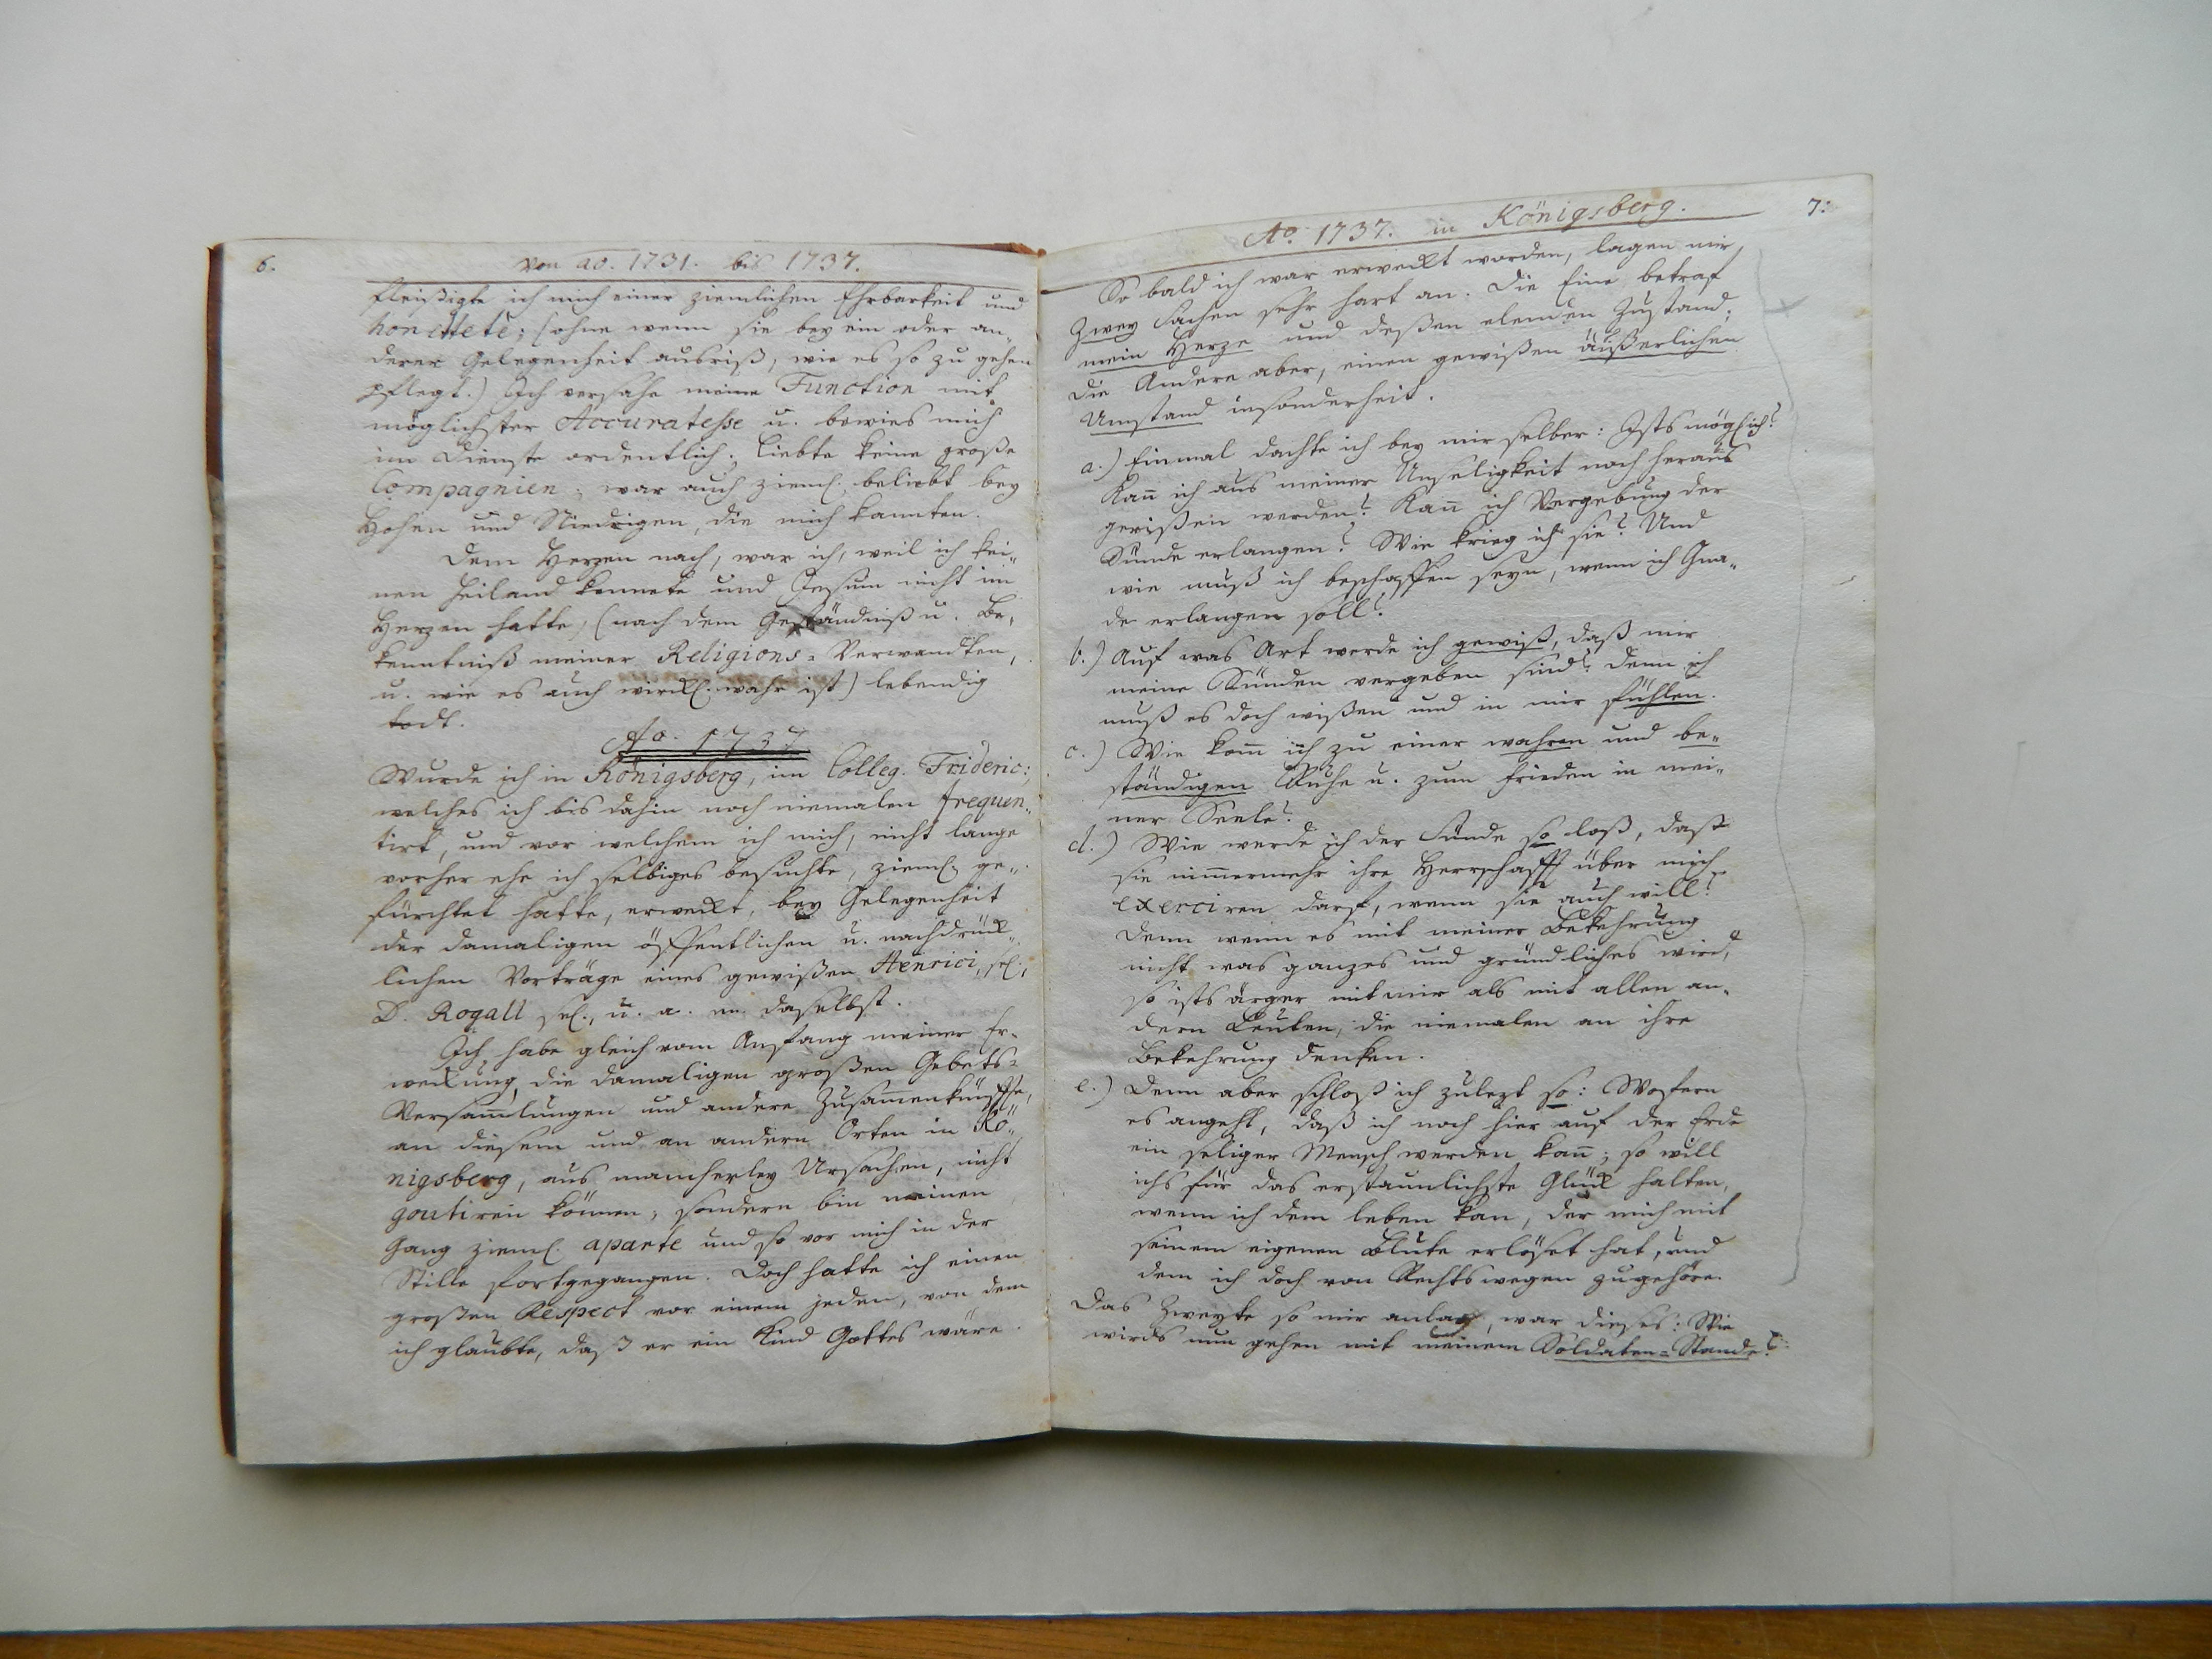 6.
Von ao. 1731. bis 1737.
fleißigte ich mich einer ziemlichen Ehrbarkeit und
honettete; (ohne wenn sie bey ein oder an„
derer Gelegenheit ausriß, wie es so zu gehen
pflegt.) Ich versahe meine Function mit
möglichster Accuratesse u. bewies mich
im Dienste ordentlich; liebte keine große
Compagnien; war auch zieml. beliebt bey
Hohen und Niedrigen, die mich kannten.
Dem Herzen nach, war ich, weil ich kei„
nen Heiland kennete und Jesum nicht im
Herzen hatte, (nach dem Geständniß u. Be„
kenntniß meiner Religions=Verwandten,
u. wie es auch wirkl. wahr ist) lebendig
todt.
Ao. 1737
Wurde ich in Königsberg, im Colleg. Frideric:,
welches ich bis dahin noch niemalen frequen„
tirt, und vor welchem ich mich, nicht lange
vorher ehe ich selbiges besuchte, zieml. ge„
fürchtet hatte, erwekt, bey Gelegenheit
der damaligen öffentlichen u. nachdrük„
lichen Vorträge eines gewißen Henrici, sel.,
D. Rogall sel., u. a. m. daselbst.
Ich habe gleich vom Anfang meiner Er„
wekung die damaligen großen Gebets=
Versam̅lungen und andere Zusam̅enkünffte,
an diesem und an andern Orten in Kö„
nigsberg, aus mancherley Ursachen, nicht
goutiren können; sondern bin meinen
Gang zieml. aparte und so vor mich in der
Stille fortgegangen. Doch hatte ich einen
großen Respect vor einem jeden, von dem
ich glaubte, daß er ein Kind Gottes wäre.
Ao. 1737. in Königsberg.
7.
So bald ich war erwekt worden, lagen mir
Zwey Sachen sehr hart an. Die Eine betraf
mein Herze und deßen elenden Zustand;
die Andere aber, einen gewißen äußerlichen
Umstand insonderheit.
a.) Einmal dachte ich bey mir selber: Ists möglich?
Kan̅ ich aus meiner Unseligkeit noch heraus
gerißen werden? Kan̅ ich Vergebung der
Sünde erlangen? Wie krieg ich sie? Und
wie muß ich beschaffen seyn, wenn ich Gna„
de erlangen soll?
b.) Auf was Art werde ich gewiß, daß mir
meine Sünden vergeben sind? denn ich
muß es doch wißen und in mir fühlen.
c.) Wie kom̅ ich zu einer wahren und be„
ständigen Ruhe u. zum Frieden in mei„
ner Seele?
d.) Wie werde ich der Sünde so loß, daß
sie nimmermehr ihre Herrschafft über mich
exerciren darf, wenn sie auch will?
Denn wenn es mit meiner Bekehrung
nicht was ganzes und gründliches wird,
so ists ärger mit mir als mit allen an„
dern Leuten, die niemalen an ihre
Bekehrung denken.
e.) Denn aber schloß ich zulezt so: Wofern
es angeht, daß ich noch hier auf der Erde
ein seliger Mensch werden kan̅; so will
ichs für das erstaunlichste Glük halten,
wenn ich dem leben kan, der mich mit
seinem eigenen Blute erlöset hat, und
dem ich doch von Rechts wegen zugehöre.
Das Zweyte so mir anlag, war dieses: Wie
wirds nun gehen mit meinem Soldaten=Stande?